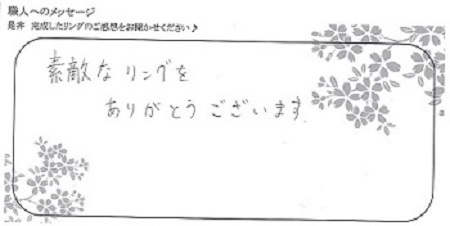 職人へのメッセージ
是非 完成したリングのご感想をお聞かせください♪
素敵なリングを
ありがとうございます。